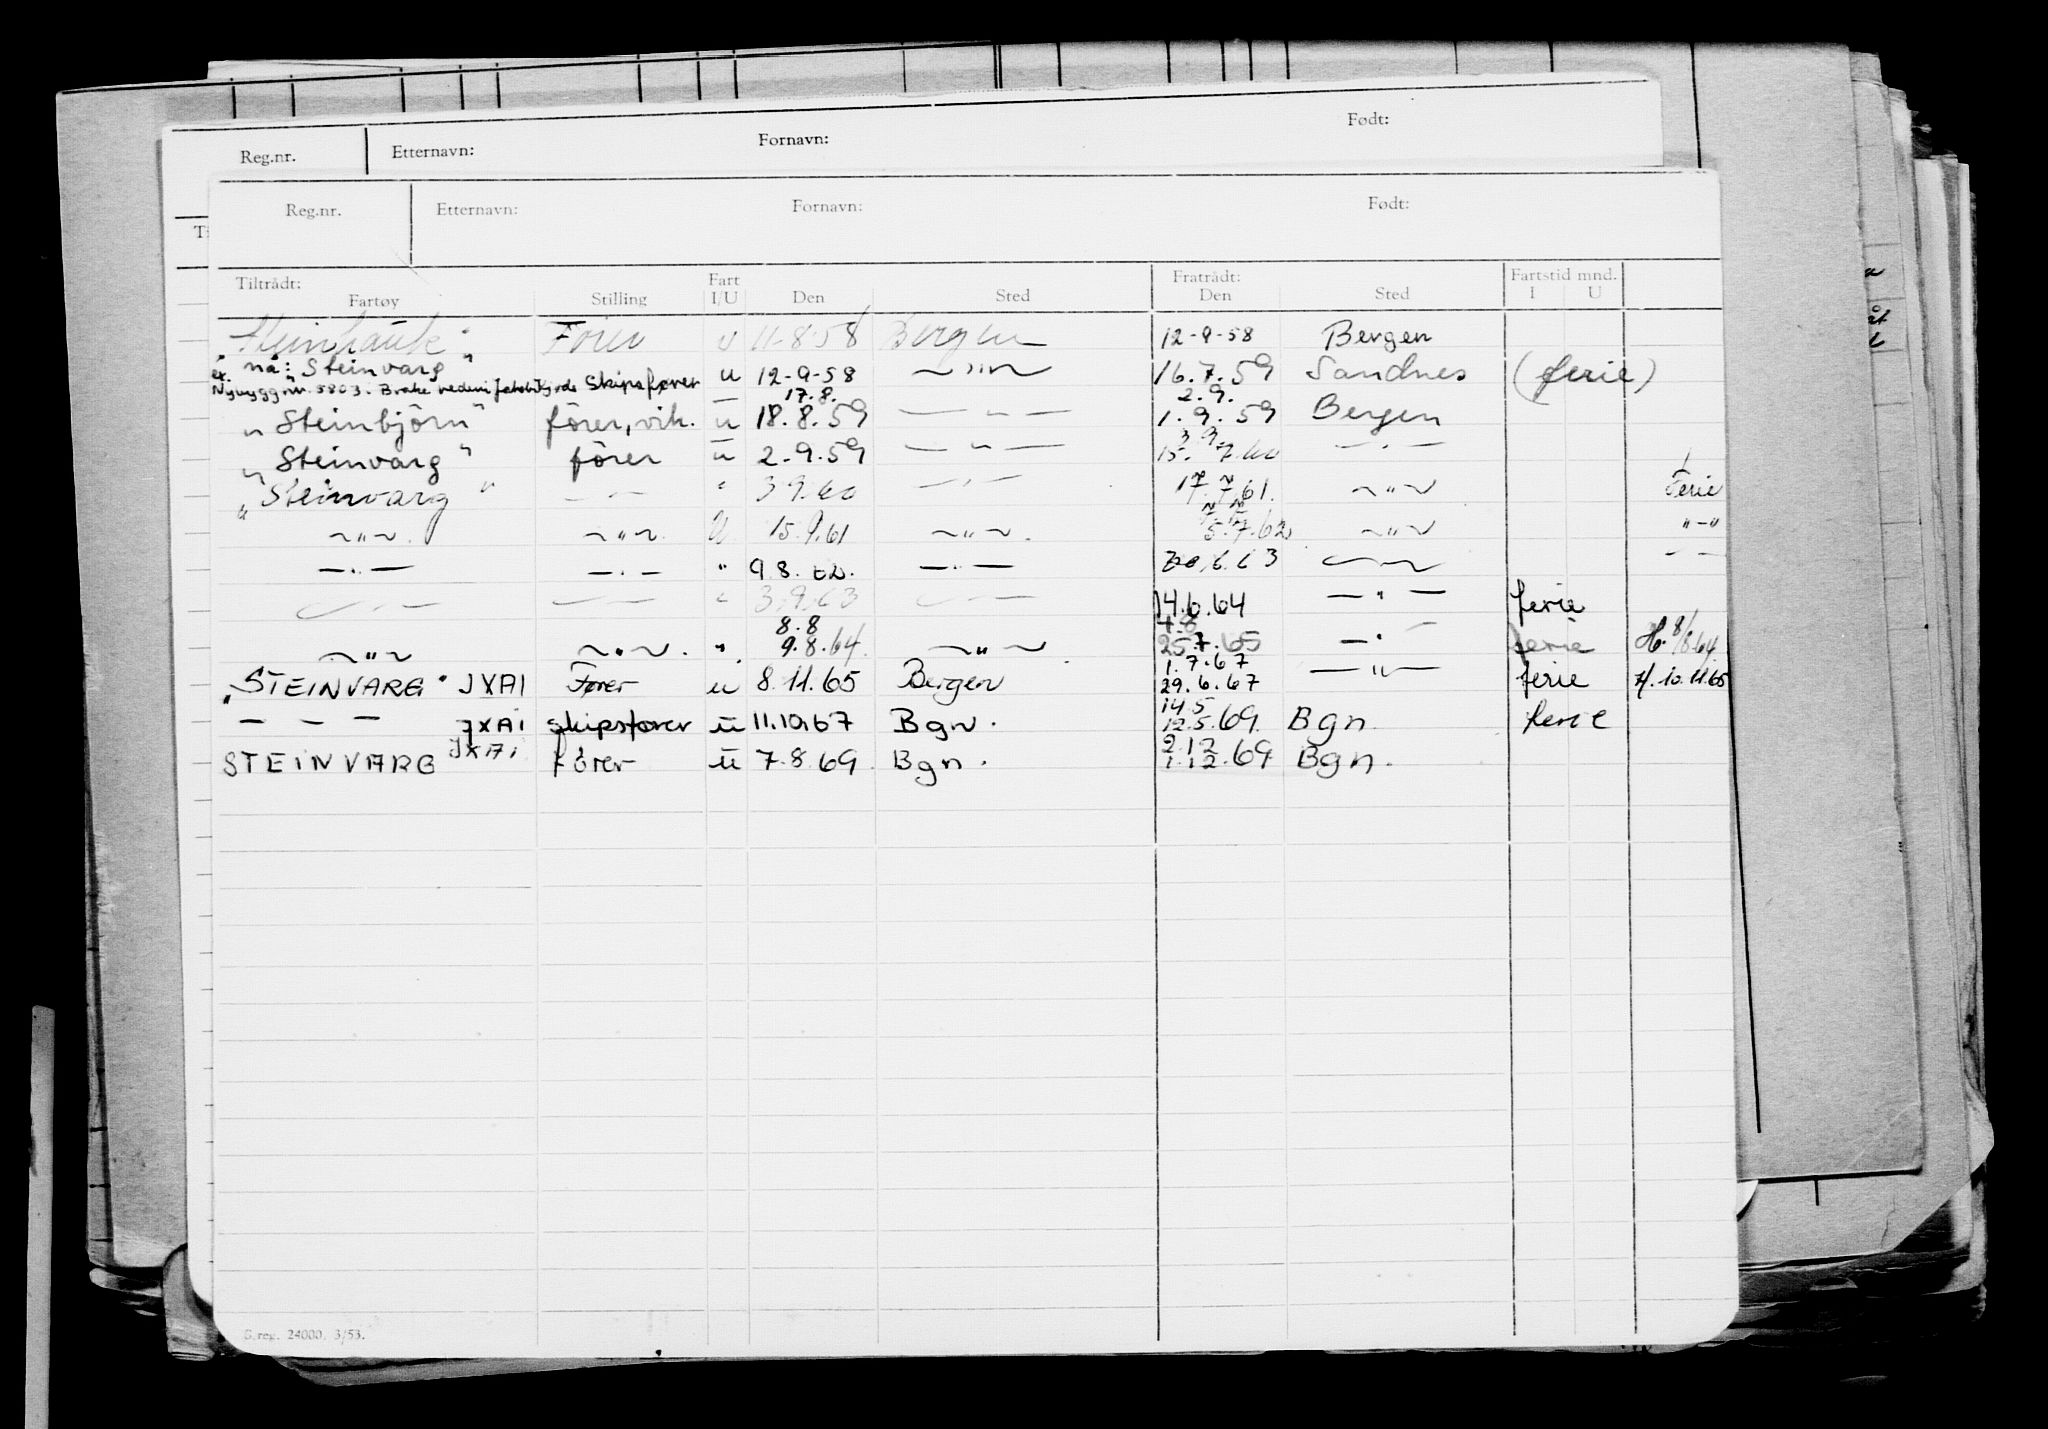 Reg.nr. Etternavn: Fornavn: Født:
Reg.nr. Etternavn: Fornavn: Født:
Tiltrådt: Fart Fratrådt: Fartstid mnd.
Fartøy Stilling I/U Den Sted Den Sted I U
"Steinhauk" Fører u 11-8-58 Bergen 12-9-58 Bergen
nå: Steinvarg" u 12-9-58 —"— 16.7.59 Sandnes (ferie)
ex. Nybygg nr. 5803. Skipsfører 17.8. 2.9.
"Steinbjörn" förer, vik. u 18.8.59 —"— 1.9.59 Bergen
"Steinvarg" förer u 2.9.59 —"— 15.7.60 —"—
3.9.
"Steinvarg" —"— " 3.9.60 —"— 17.7.61. —"— Ferie
—"—. —"—. U 15.9.61 —"—. 5.7.62 —"— "—"
—"— —"— " 9.8.62. —"— 20.6.63 —"— —"—
—"— —"— " 3.9.63 —"— 14.6.64 —"— ferie
8.8 4.8
—"— —"—. " 9.8.64. —"— 25.7.65 —"— ferie H. 8/8 64
1.7.67
"STEINVARG" JXAI Fører u 8.11.65 Bergen 29.6.67 —"— ferie H. 10.11.65
14.5
— — — JXAI skipsfører u 11.10.67 Bgn. 12.5.69. Bgn. ferie
2.12
STEINVARG JXAI fører u 7.8.69. Bgn. 1.12.69 Bgn.
G.reg. 24000. 3/53.